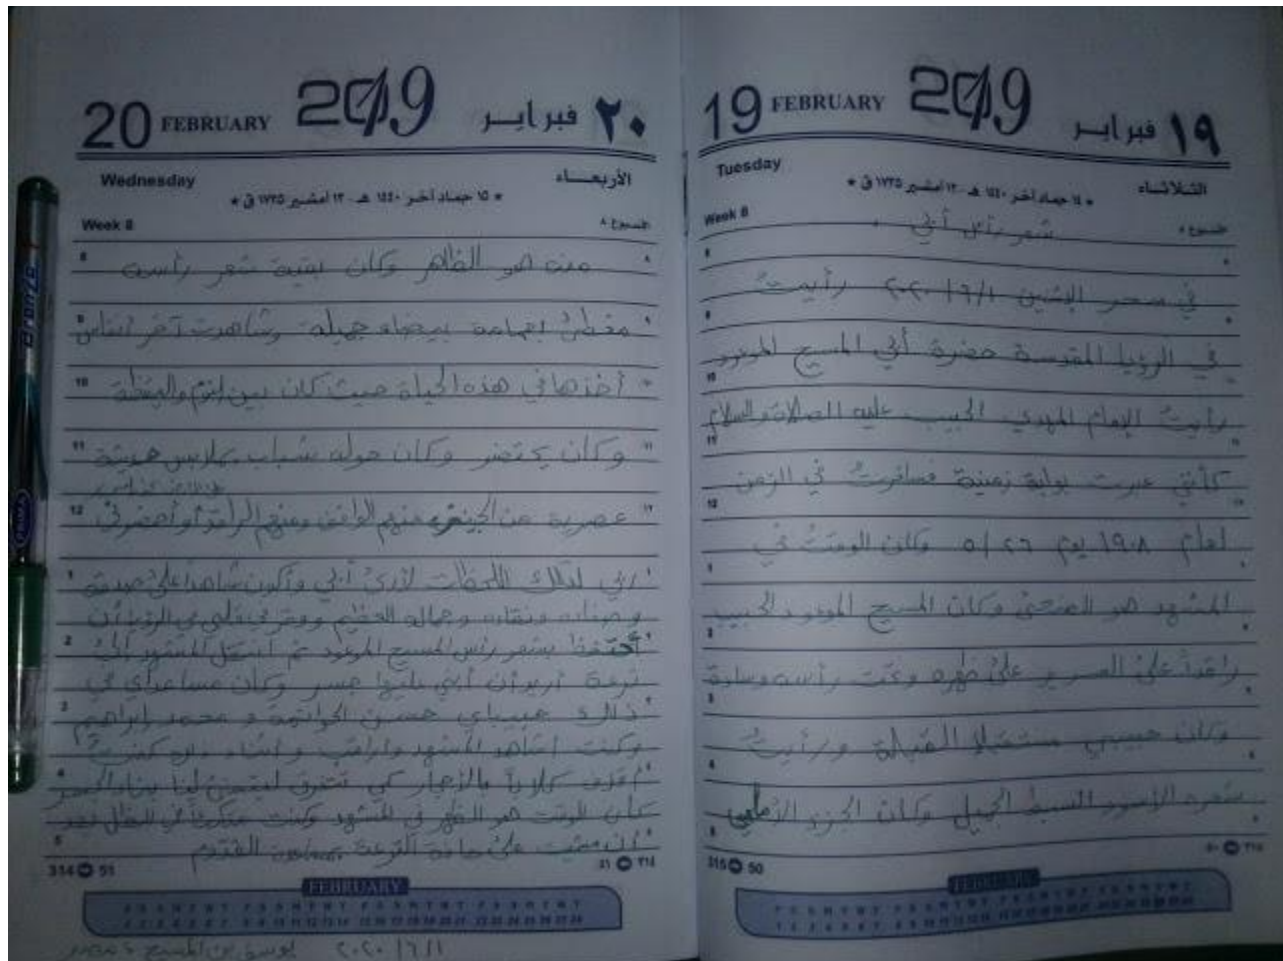 19 FEBRUARY 2019 ١٩ فبراير
Tuesday الثلاثاء
* ١٤ جماد آخر ١٤٤٠ هـ - ١٢ أمشير ١٧٣٥ ق *
Week 8
شعر رأس أبي
في سحر الإثنين ٢٠٢٠/٦/١ رأيتُ
في الرؤيا المقدسة حضرة أبي المسيح الموعود
رأيتُ الإمام المهدي الحبيب عليه الصلاة والسلام
كأنني عبرت بوابة زمنية فسافرتُ في الزمن
لعام ١٩٠٨ يوم ٥/٢٦ وكان الوقتُ في
المشهد هو الضحى وكان المسيح الموعود الحبيب
راقداً على السرير على ظهره وتحت رأسه وسادة
وكان حبيبي مستقبلا القبلة ورأيتُ
شعره الأسود السبط الجميل وكان الجزء الأمامي
315 50
FEBRUARY
20 FEBRUARY 2019 ٢٠ فبراير
Wednesday الأربعاء
* ١٥ جماد آخر ١٤٤٠ هـ - ١٣ أمشير ١٧٣٥ ق *
Week 8
منه هو الظاهر وكان بقية شعر رأسه
مغطىً بعمامة بيضاء جميلة وشاهدت آخر أنفاس
أخذها في هذه الحياة حيث كان بين النوم واليقظة
وكان يحتضر وكان حوله شباب بملابس حديثة
عصرية من منهم الواقف ومنهم الراقد أو أحضرني
ربي لتلك اللحظات لأرى أبي وأكون شاهداً على صدقه
ونقائه وجماله العظيم في الرؤيا أن
أحتفظ بشعر رأس المسيح الموعود ثم انتقل المشهد إلى
ترعة أريد أن أبني عليها جسر وكان مساعداي في
ذلك حبيباي حسن و محمد إبراهيم
وكنت أشاهد المشهد وأراقب وأثناء ذلك كنتُ
أقذف كلاباً بالأحجار كي تتفرق ليتسنى لنا بناء الجسر
كأن الوقت هو الظهر في المشهد وكنت في الظل بعد
أن مشيت على حافة الترعة القدم
314 51 ٣١٤
FEBRUARY
يوسف بن المسيح ، مصر ٢٠٢٠/٦/١